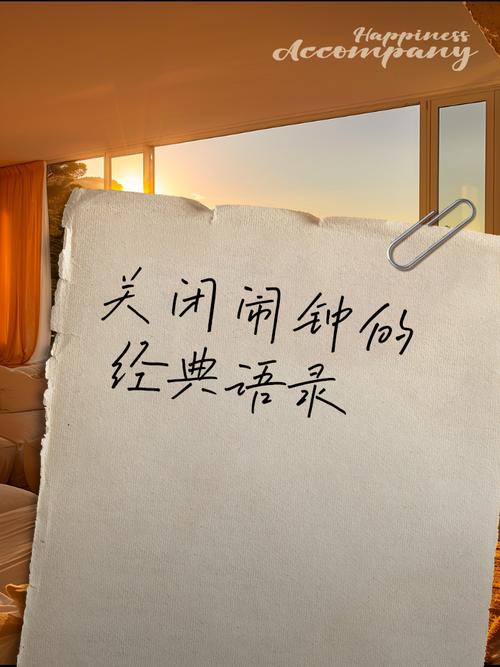 Happiness
Accompany
关闭闹钟的
经典语录